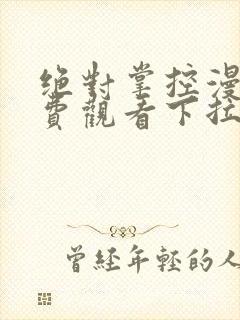 絕對掌控漫
費觀看下拉
曾經年輕的人